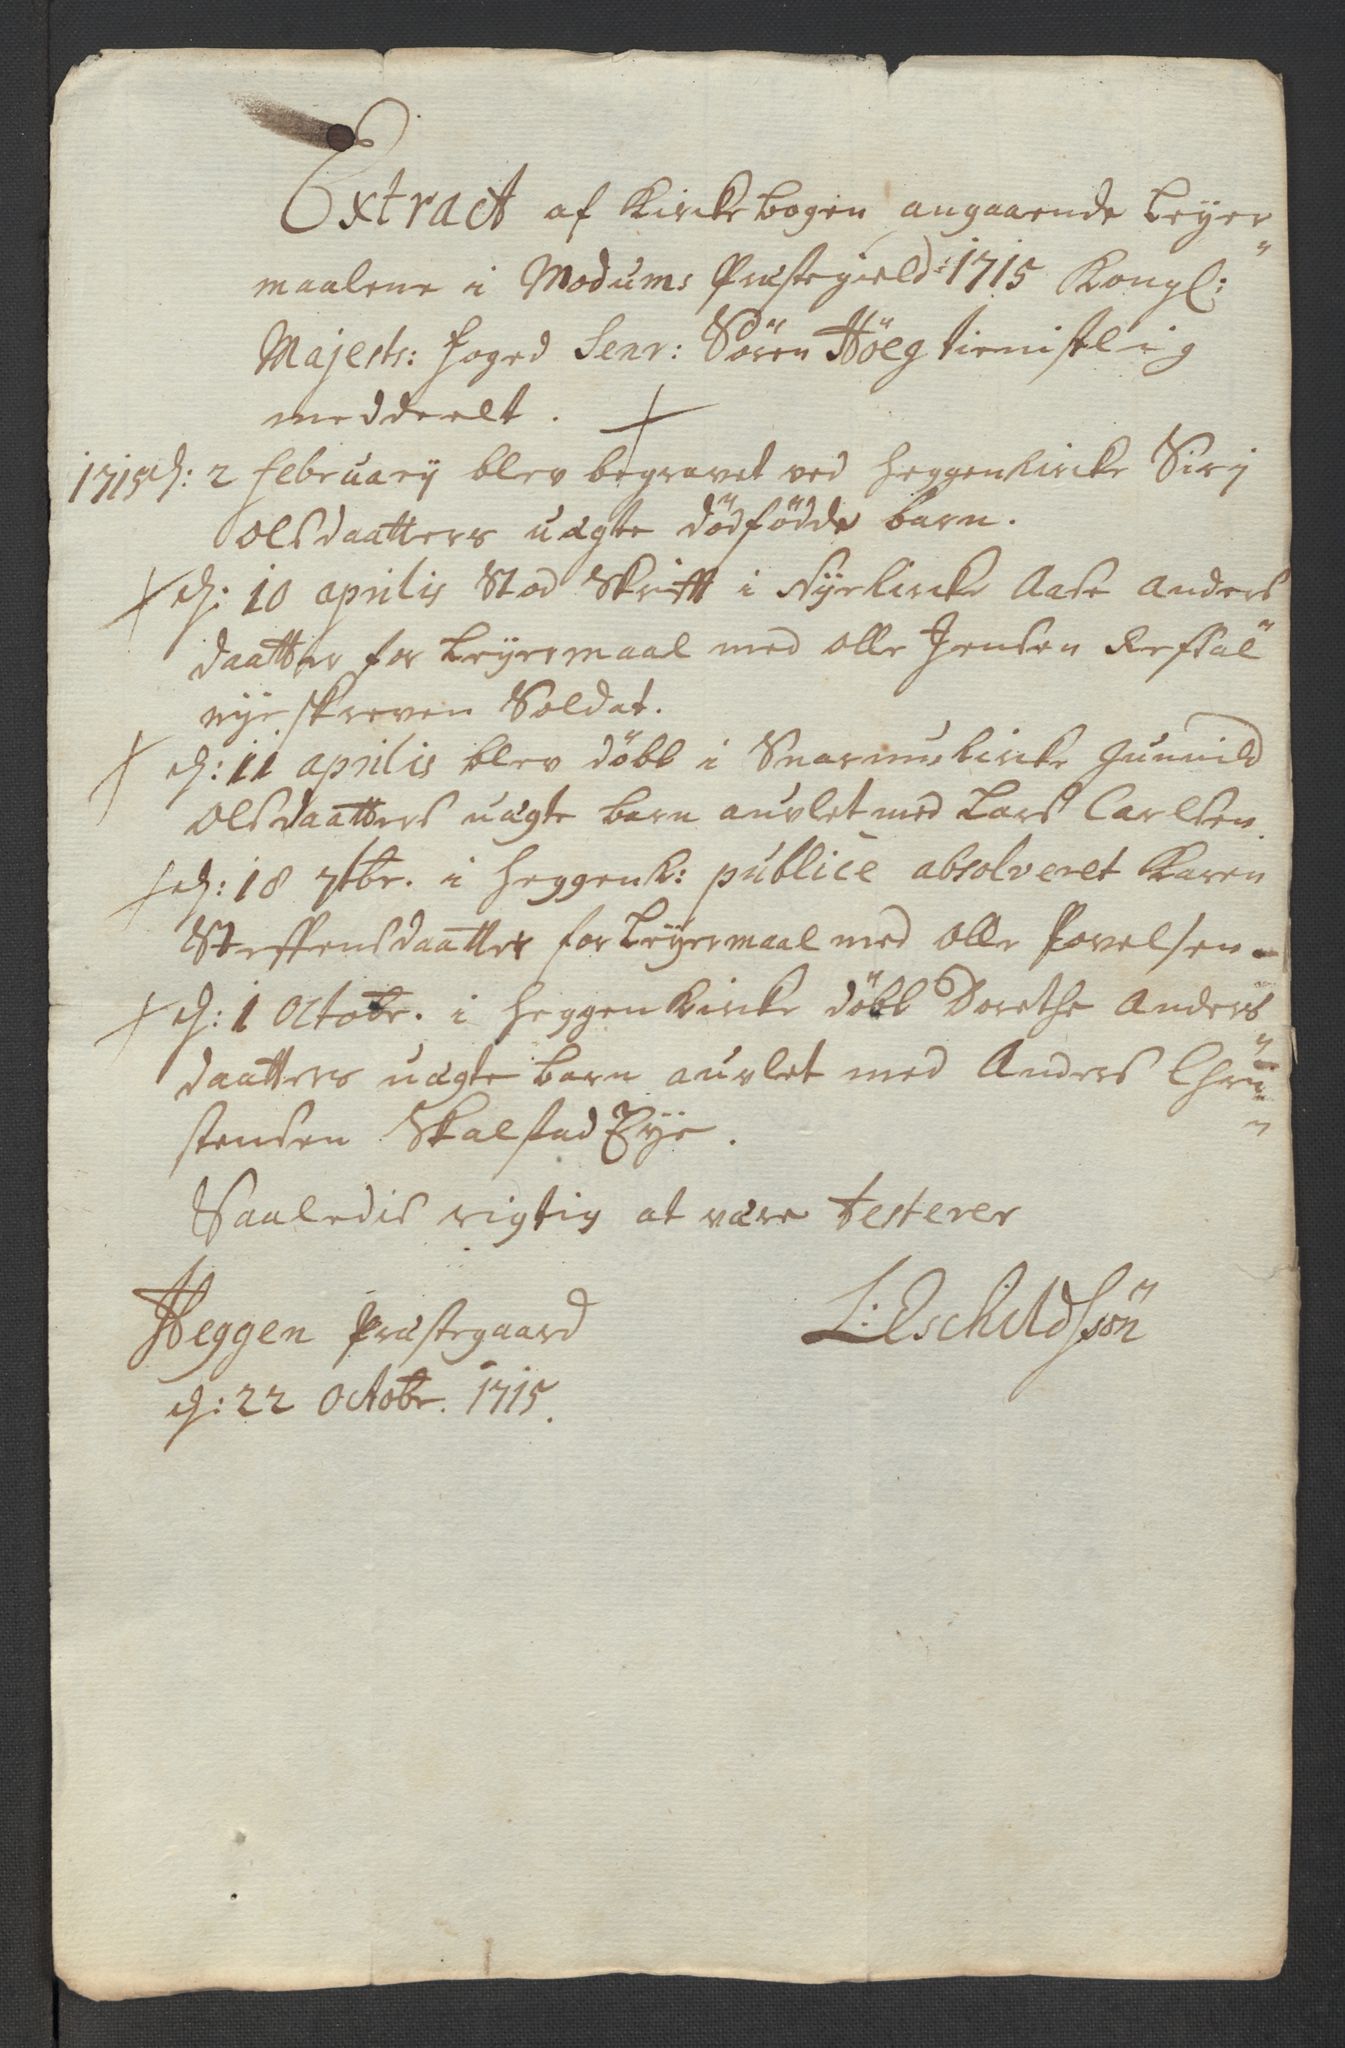 Extract af Kirckebogen angaaende Leyer
maalene i Modums Præstegield 1715 Kongl:
Majests: Foged Senr: Sören Höeg tienistlig
meddeelt.
1715 d: 2 February blev begravet ved Heggenkircke Sirj
Olsdaatters uægte dödfödde barn.
d: 10 aprilis Stod Skrifft i Nyekircke Aase Anders
daatter for Leyermaal med Olle Jensen Refsal
nye skreven Soldat.
d: 11 aprilis blev döbt i Snarumkircke Gunnild
Olsdaatters uægte barn auvlet med Lars Carlsen.
d: 18 7tbr. i Heggenk: publice absolveret Karen
Steffensdaatter for Leyermaal med Olle Povelsen.
d: 1 Octobr. i Heggenkircke döbt Dorethe Anders
daatters uægte barn auvlet med Anders Chri
stensen Skalstad Eye.
Saaledis rigtig at være testerer
Heggen Præstegaard L: Eschildssön
d: 22 Octobr. 1715.